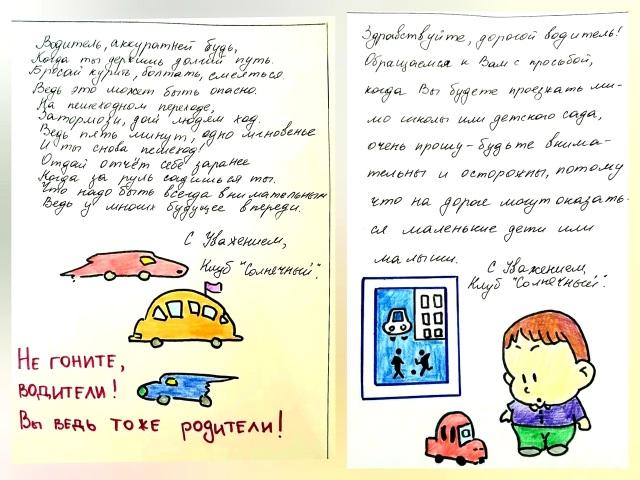 Водитель, аккуратней будь,
Когда ты держишь долгий путь.
Бросай курить, болтать, смеяться.
Ведь это может быть опасно.
На пешеходном переходе,
Затормози, дай людям ход.
Ведь пять минут, одно мгновенье
И ты снова пешеход!
Отдай отчёт себе заранее
Когда за руль садишься ты.
Что надо быть всегда внимательным
Ведь у многих будущее впереди.
С Уважением,
Клуб "Солнечный".
Не гоните,
водители!
Вы ведь тоже родители!
Здравствуйте, дорогой водитель!
Обращаемся к Вам с просьбой,
когда Вы будете проезжать ми-
мо школы или детского сада,
очень прошу - будьте внима-
тельны и осторожны, потому
что на дороге могут оказать-
ся маленькие дети или
малыши.
С Уважением,
Клуб "Солнечный".